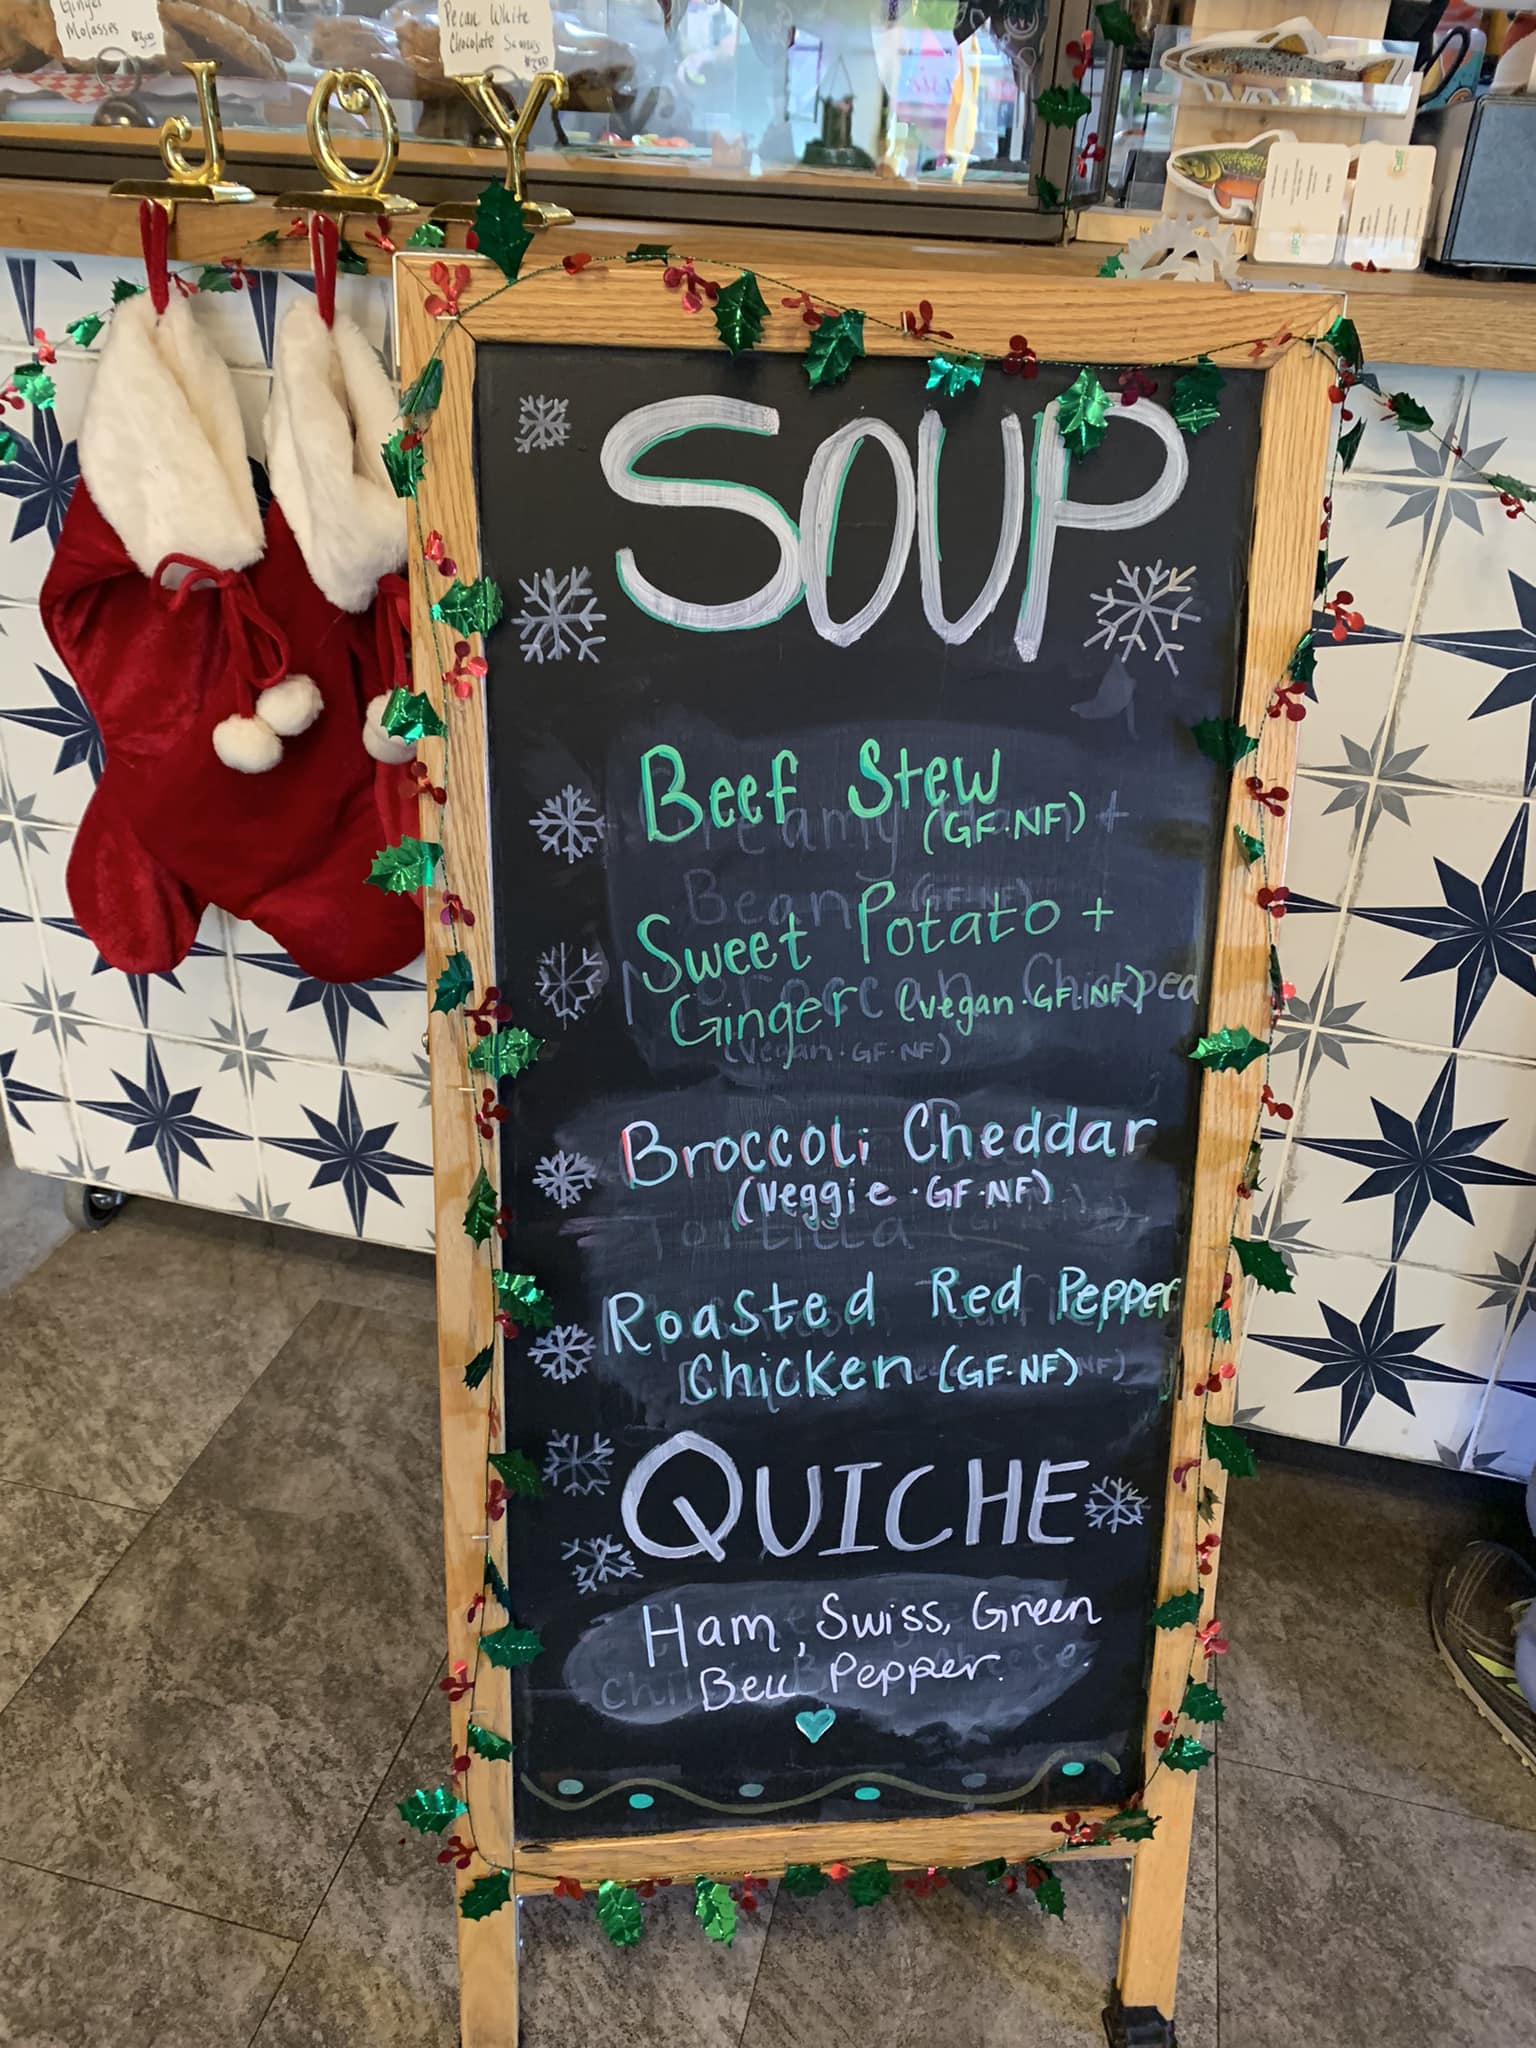 Ginger
Molasses
Pecan White
Chocolate Scones
JOY
SOUP
Beef Stew
(GF·NF)
Sweet Potato +
Ginger (vegan·GF·NF)
Broccoli Cheddar
(Veggie·GF·NF)
Roasted Red Pepper
Chicken (GF·NF)
QUICHE
Ham, Swiss, Green
Bell Pepper.